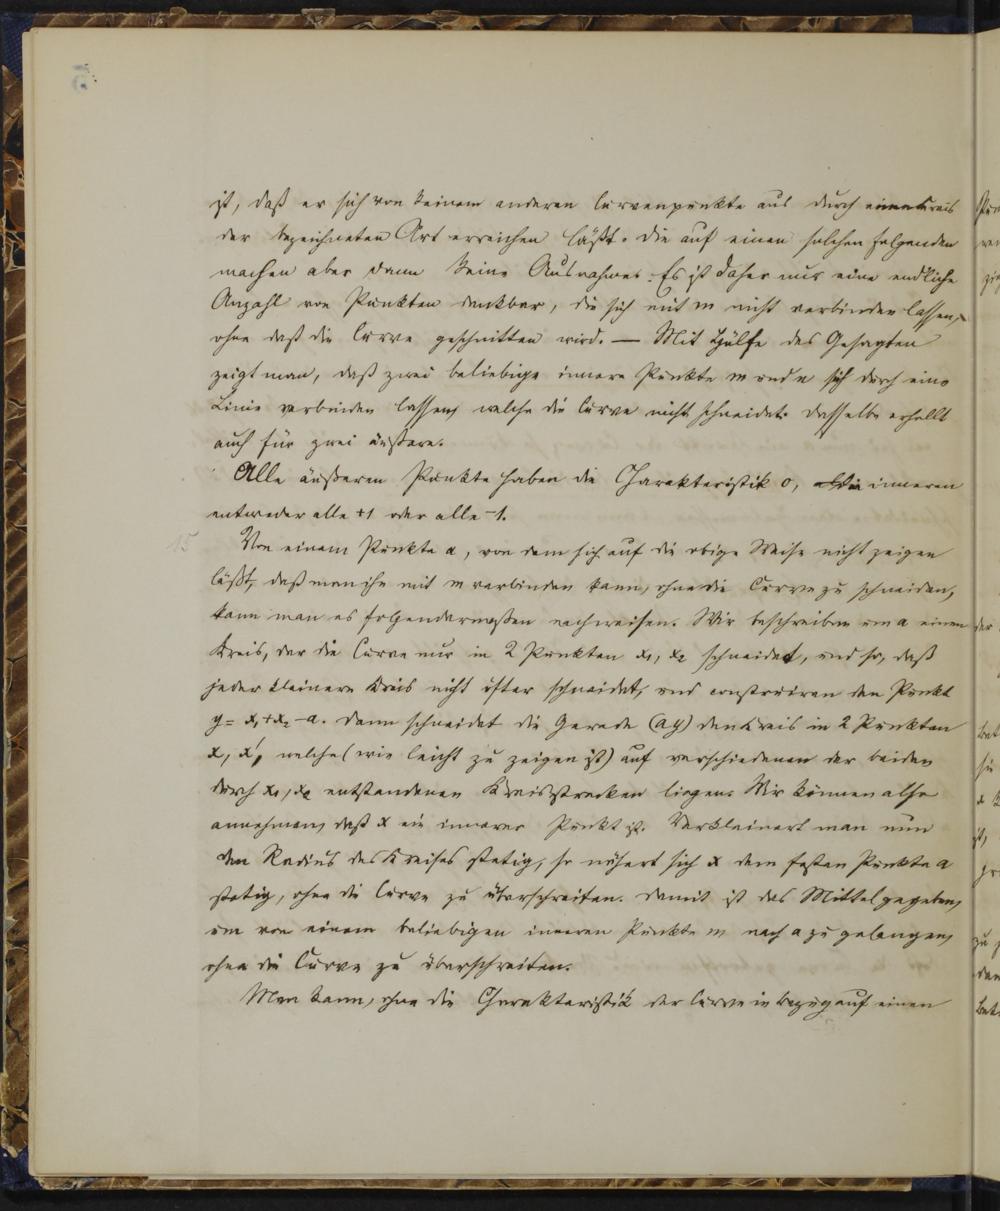 ist, daß er sich von keinem anderen Curvenpunkte aus durch einen Kreis
der bezeichneten Art erreichen läßt. Die auf einen solchen folgenden
machen aber dann keine Ausnahme. Es ist daher nur eine endliche
Anzahl von Punkten denkbar, die sich mit m nicht verbinden lassen,
ohne daß die Curve geschnitten wird. — Mit Hülfe des Gesagten
zeigt man, daß zwei beliebige innere Punkte m und n sich durch eine
Linie verbinden lassen, welche die Curve nicht schneidet. Dasselbe erhellt
auch für zwei äußere.
Alle äußeren Punkte haben die Charakteristik 0, die inneren
entweder alle +1 oder alle -1.
15 Von einem Punkte a, von dem sich auf die obige Weise nicht zeigen
läßt, daß man ihn mit m verbinden kann, ohne die Curve zu schneiden,
kann man es folgendermaßen nachweisen. Wir beschreiben um a einen
Kreis, der die Curve nur in 2 Punkten x₁, x₂ schneidet, und so, daß
jeder kleinere Kreis nicht öfter schneidet, und construiren den Punkt
y = x₁ + x₂ - a. Dann schneidet die Gerade (ay) den Kreis in 2 Punkten
x, x', welche (wie leicht zu zeigen ist) auf verschiedenen der beiden
durch x₁, x₂ entstandenen Kreisstrecken liegen. Wir können also
annehmen, daß x ein innerer Punkt ist. Verkleinert man nun
den Radius des Kreises stetig, so nähert sich x dem festen Punkte a
stetig, ohne die Curve zu überschreiten. Damit ist das Mittel gegeben,
um von einem beliebigen inneren Punkte m nach a zu gelangen,
ohne die Curve zu überschreiten.
Man kann, ohne die Charakteristik der Curve in bezug auf einen